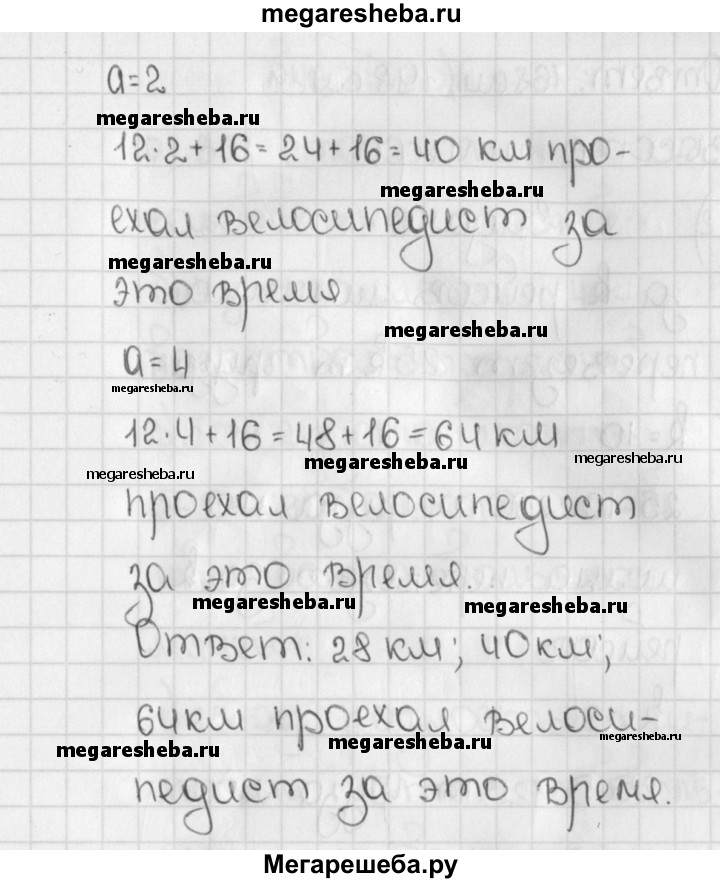 megaresheba.ru
a=2
megaresheba.ru
12·2+16=24+16=40 км про-
megaresheba.ru
ехал велосипедист за
megaresheba.ru
это время
megaresheba.ru
a=4
megaresheba.ru
12·4+16=48+16=64 км
megaresheba.ru
megaresheba.ru
megaresheba.ru
проехал велосипедист
за это время.
megaresheba.ru
megaresheba.ru
Ответ: 28 км; 40км;
64км проехал велоси-
megaresheba.ru
megaresheba.ru
megaresheba.ru
педист за это время.
Мегарешеба.ру